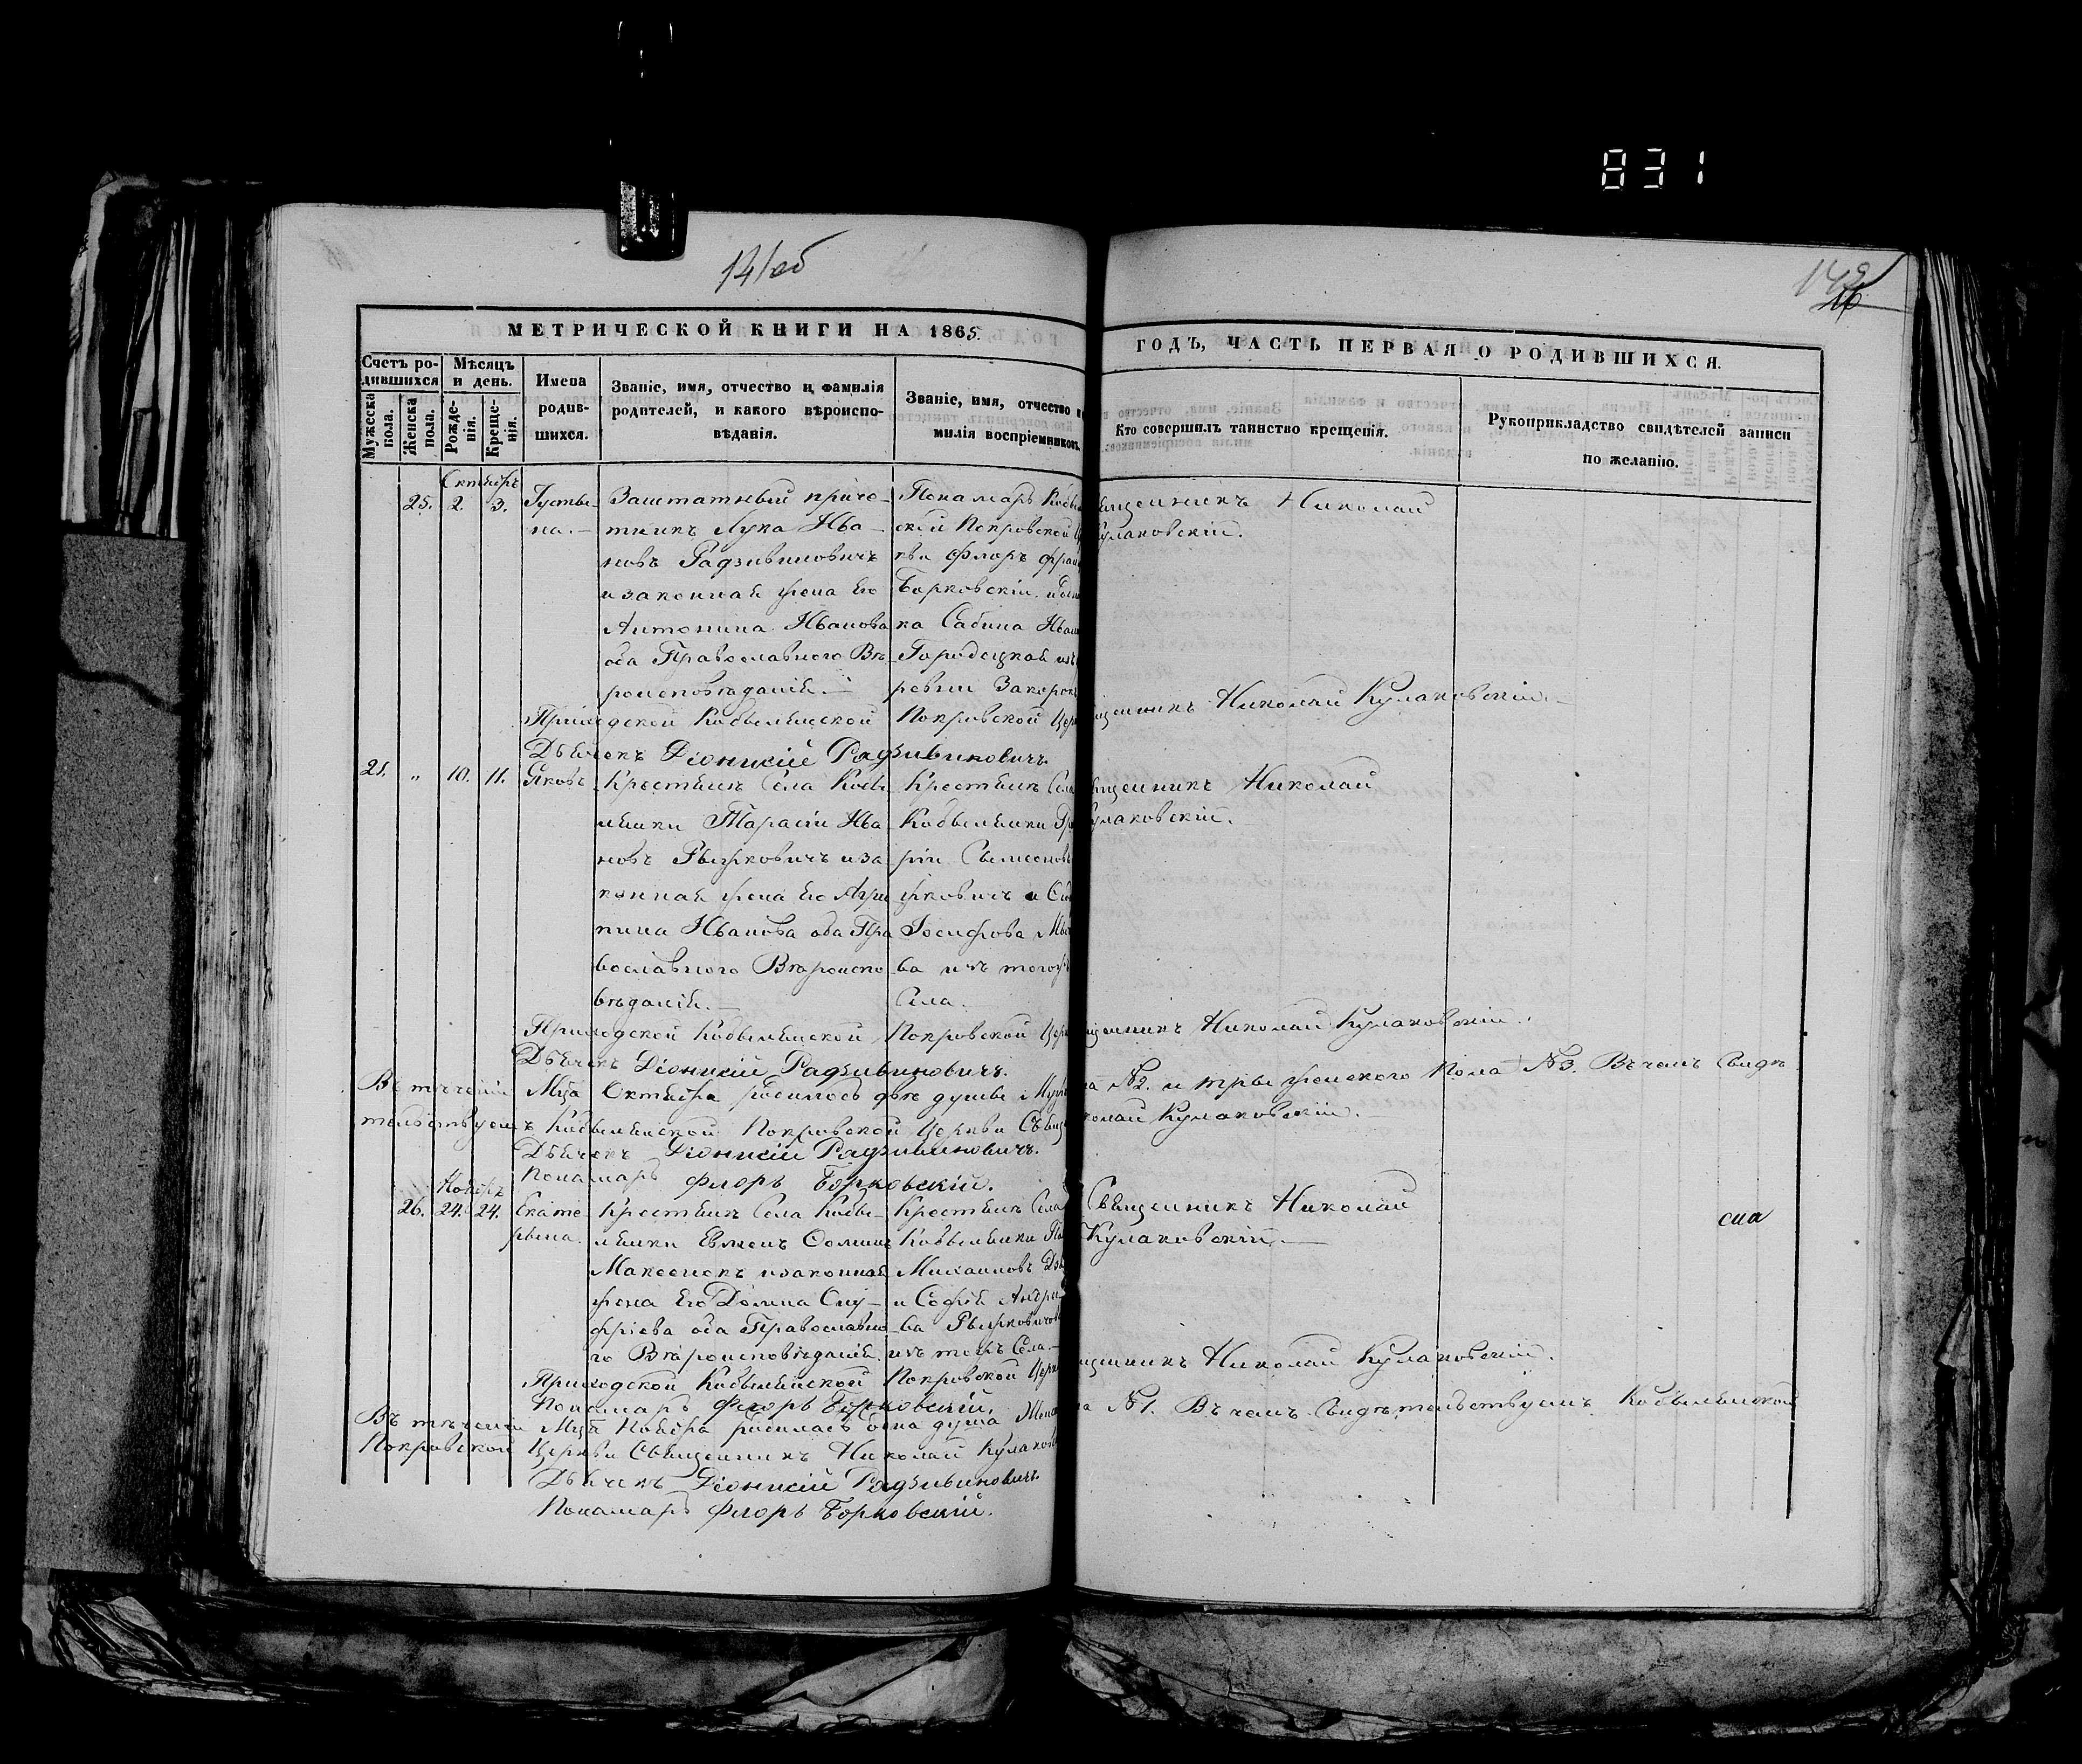 831
141об
142
16
МЕТРИЧЕСКОЙ КНИГИ НА 1865.
ГОДЪ, ЧАСТЬ ПЕРВАЯ О РОДИВШИХСЯ.
Счетъ ро-
дившихся
Мѣсяцъ
и день.
Мужеска
пола.
Женска
пола.
Рожде-
нія.
Креще-
нія.
Имена
родив-
шихся.
Званіе, имя, отчество и фамилія
родителей, и какого вѣроиспо-
вѣданія.
Званіе, имя, отчество и
милія воспріемниковъ.
Кто совершилъ таинство крещенія.
Рукоприкладство свидѣтелей записи
по желанію.
Октябрь
25. 2. 3.
Іусти-
на. —
Заштатный приче-
тникъ Лука Ива-
новъ Радзивиновичъ
и законная жена его
Антонина Иванова
оба Православного Вѣ-
роисповѣданія. —
Понамарь
ской Покровской
кви Флоръ
Борковскій
ка Сабина
Городецкая изъ
ревни
щенникъ Николай
Кулаковскій.
Приходской Кобылянской Покровской Цер щенникъ Николай Кулаковскій. —
Дьячекъ Діонисій Радзивиновичъ.
21. „ 10. 11. Яковъ
Крестьянъ Села Кобы-
лянки Тарасій Ива-
новъ Рыжковичъ и за-
конная жена его Агри
пина Иванова оба Пра
вославного Вѣроиспо-
вѣданія. —
Крестьянъ Села
Кобылянки
рій Сымеоновъ
жковичъ и
Іосифова
ва изъ того
Села. —
щенникъ Николай
Кулаковскій. —
Приходской Кобылянской Покровской Церк щенникъ Николай Кулаковскій.
Дьячекъ Діонисій Радзивиновичъ.
Въ теченіи Мца Октября родилось двѣ души Муже ла №2. и три женского Пола №3. Въ чемъ Свидѣ
тельствуемъ Кобылянской Покровской Церкви Свящ колай Кулаковскій. —
Дьячекъ Діонисій Радзивиновичъ.
Понамарь Флоръ Борковскій.
Ноябрь
26. 24. 24.
Екате-
рына.
Крестьянъ Села Кобы-
лянки Евменъ Фоминъ
и законная
жена его Домна Ону-
фріева оба Православно-
го Вѣроисповѣданія.
Крестьянъ Села
Кобылянки
Михаиловъ
и Софія Андре-
ва Рыжковичова
изъ тогжъ Села. —
Священникъ Николай
Кулаковскій. —
сиа
Приходской Кобылянской Покровской Церк щенникъ Николай Кулаковскій.
Понамарь Флоръ Борковскій.
Въ теченіи Мца Ноября родилась одна душа Женс ла №1. Въ чемъ Свидѣтельствуемъ Кобылянской
Покровской Церкви Священникъ Николай Кулаков
Дьячекъ Діонисій Радзивиновичъ
Понамарь Флоръ Борковскій.